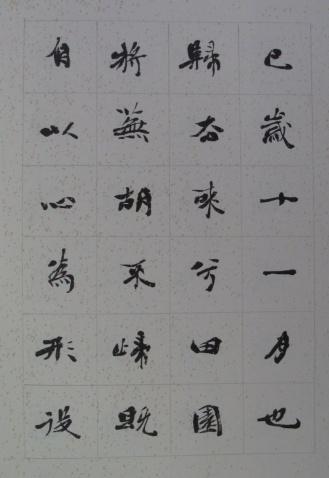 巳歲十一月也
歸去來兮田園
將蕪胡不歸既
自以心為形役